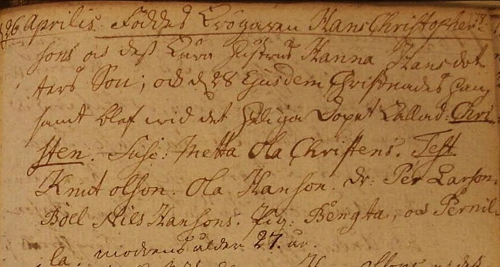 d 26 Aprilis. Föddes Krögaren Hans Christopher-
sons och dess kära Hustrus Hanna Hansdot
ters Son; och d 28 Ejusdem Christnades han
samt blef wid det heliga Dopet kallad: Chri
sten. Susc: Metta Ola Christens. Test
Knut olson. Ola Hanson. dr: Per Larson.
Boel Nies Hansons. Pig: Bengta, och Pernil-
la. modrens ålder 27. år.